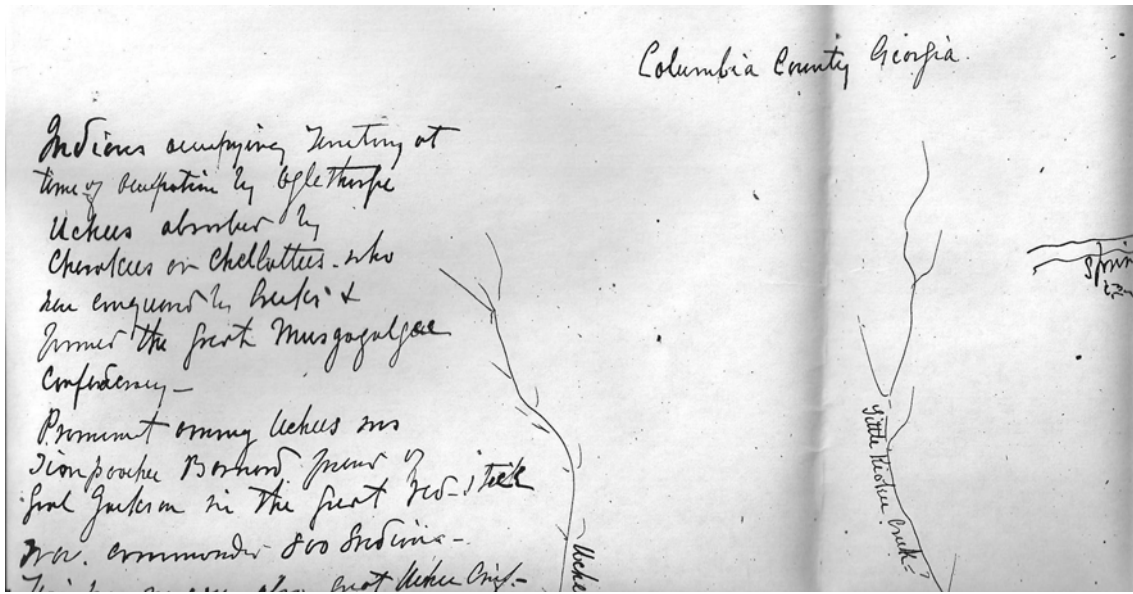 Columbia County Georgia.
Indians occupying Territory at
time of occupation by Oglethorpe
Uchees absorbed by
Cherokees or Chellottees - who
were conquered by Creeks &
formed the great Musgogulgee
Confederacy -
Prominent among Uchees was
Timpoochee Barnard friend of
Genl Jackson in the great Red-stick
War. commander 800 Indians -
also great Uchee Chief -
Uchee
Little Kiokee Creek = ?
Sprin